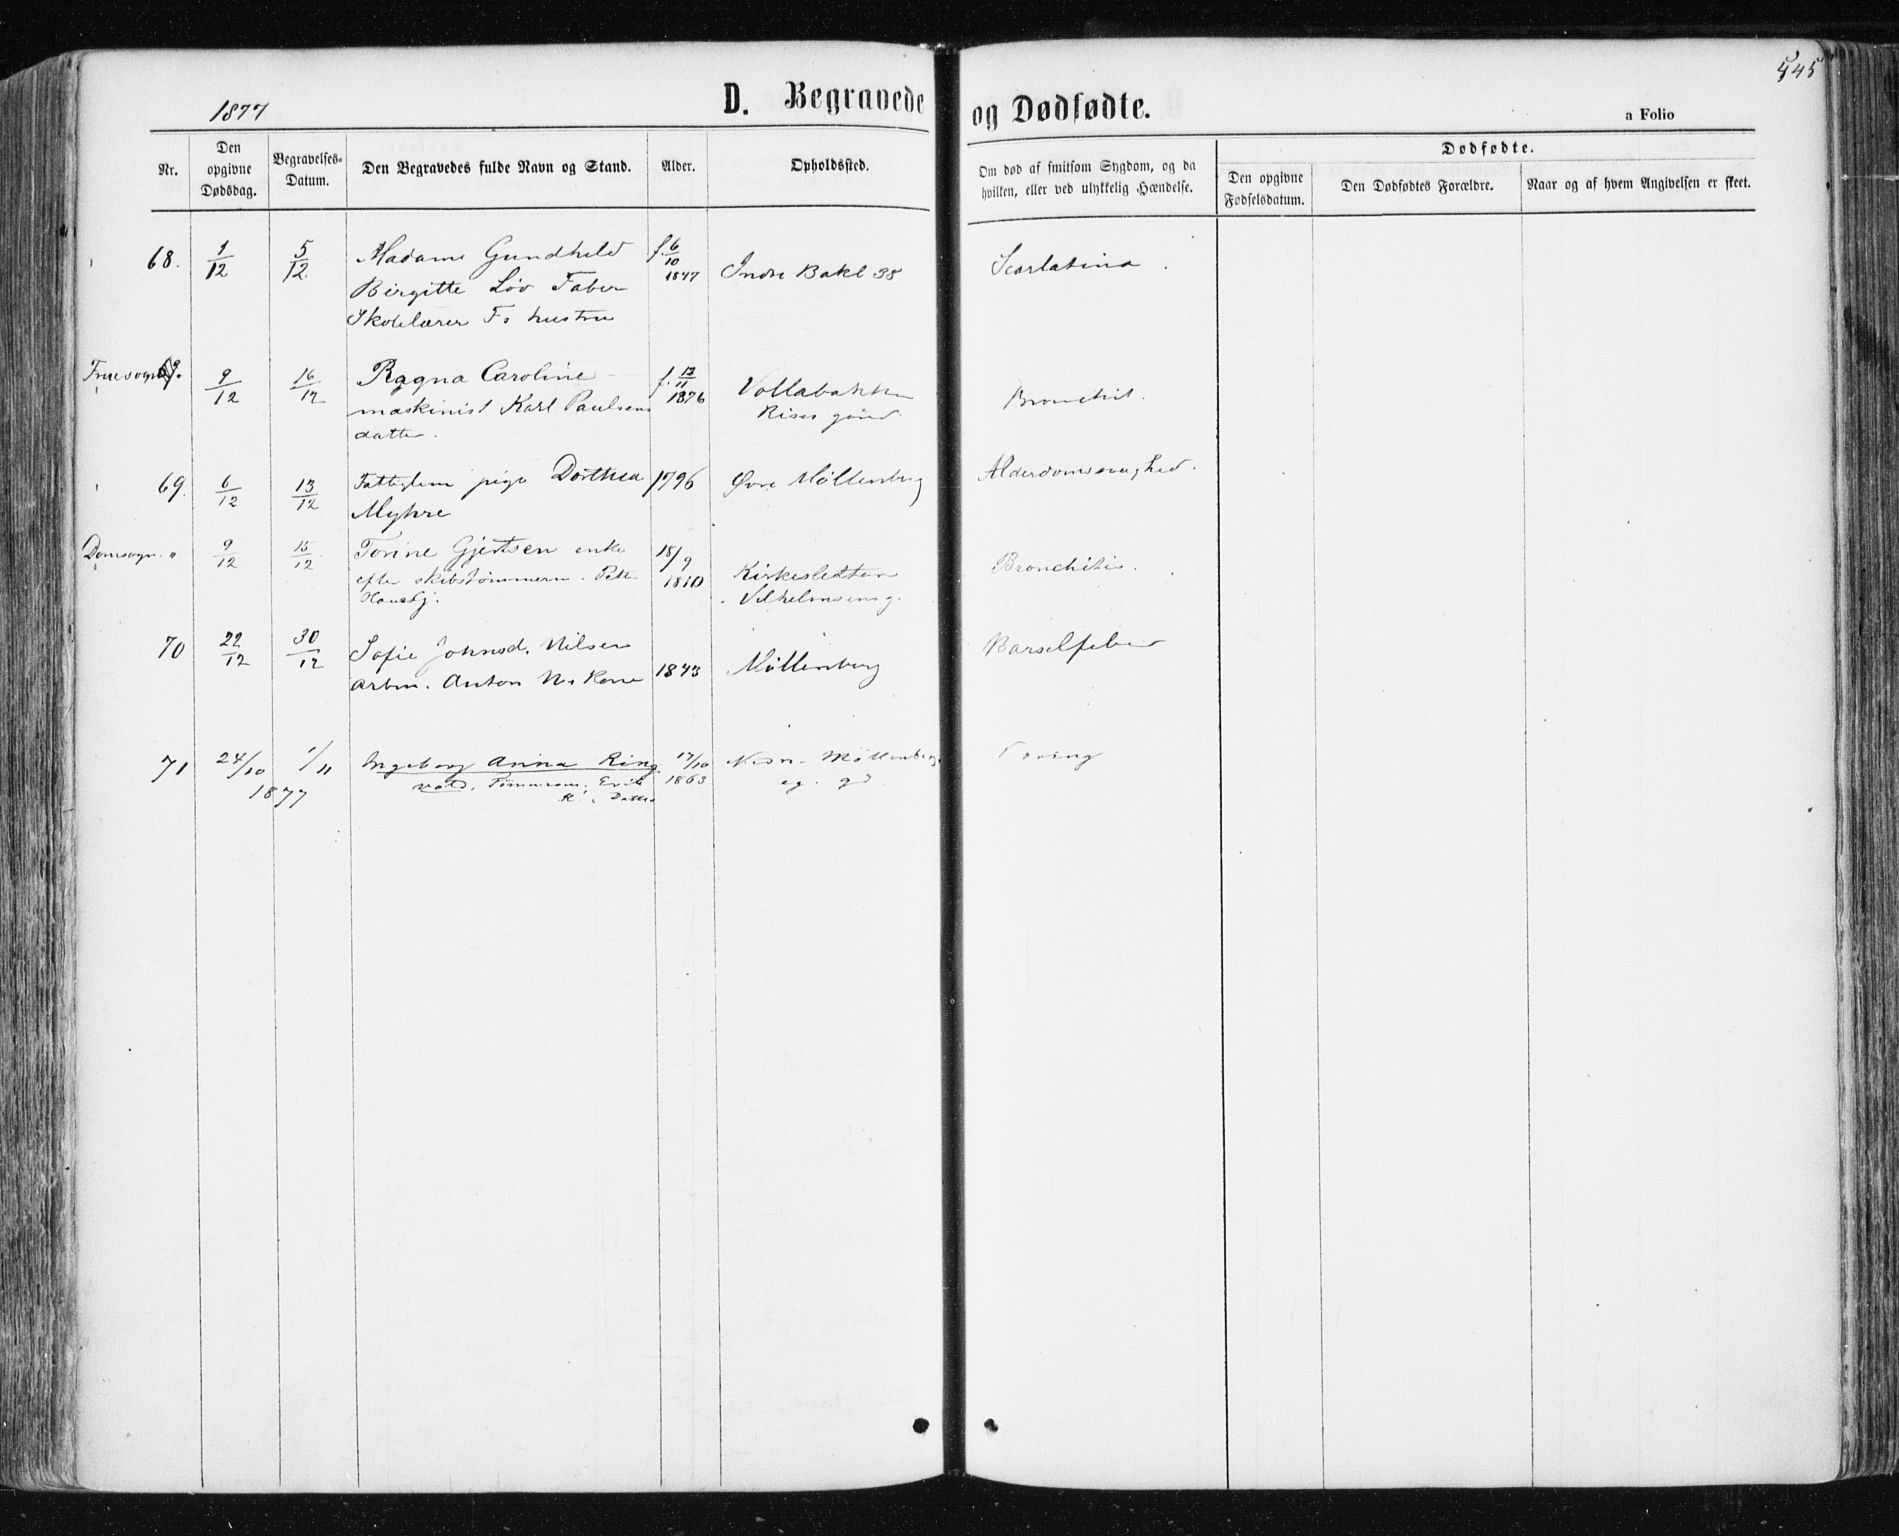 545
1877
D. Begravede og Dødfødte.
a Folio
Nr.
Den opgivne Dødsdag.
Begravelses-Datum.
Den Begravedes fulde Navn og Stand.
Alder.
Opholdssted.
Om død af smitsom Sygdom, og da
hvilken, eller ved ulykkelig Hændelse.
Dødfødte.
Den opgivne Fødselsdatum.
Den Dødfødtes Forældre.
Naar og af hvem Angivelsen er skeet.
68. 1/12 5/12 Madame Gundhild f. 6/10 1847 Indre Bakl 38 Scarlatina.
Birgitte Löv Faber
Skolelærer Fs hustru
9/12 16/12 Ragna Caroline f. 13/11 1876 Vollabakken Bronchit.
maskinist Karl Paulsens Rises gaard
datter.
69. 6/12 13/12 Fattiglem pige Dorthea 1796 Øvre Möllenberg Alderdomssvaghed.
Myhre
Domsogn. 9/12 15/12 Torine Gjertsen enke 18/9 1810 Kirkesletten Bronchitis.
efter skibstømmerm. Vilhelmsensg.
70 22/12 30/12 Sofie Johnsd. Nilsen 1843 Möllenberg Barselfeber
arbm. Anton Ns Kone
71 24/10 1/11 Ingeborg Anna Ring 17/10 1863 Möllenberg
1877 vold, Tømmerm. Erik eg. gd
R. Datter